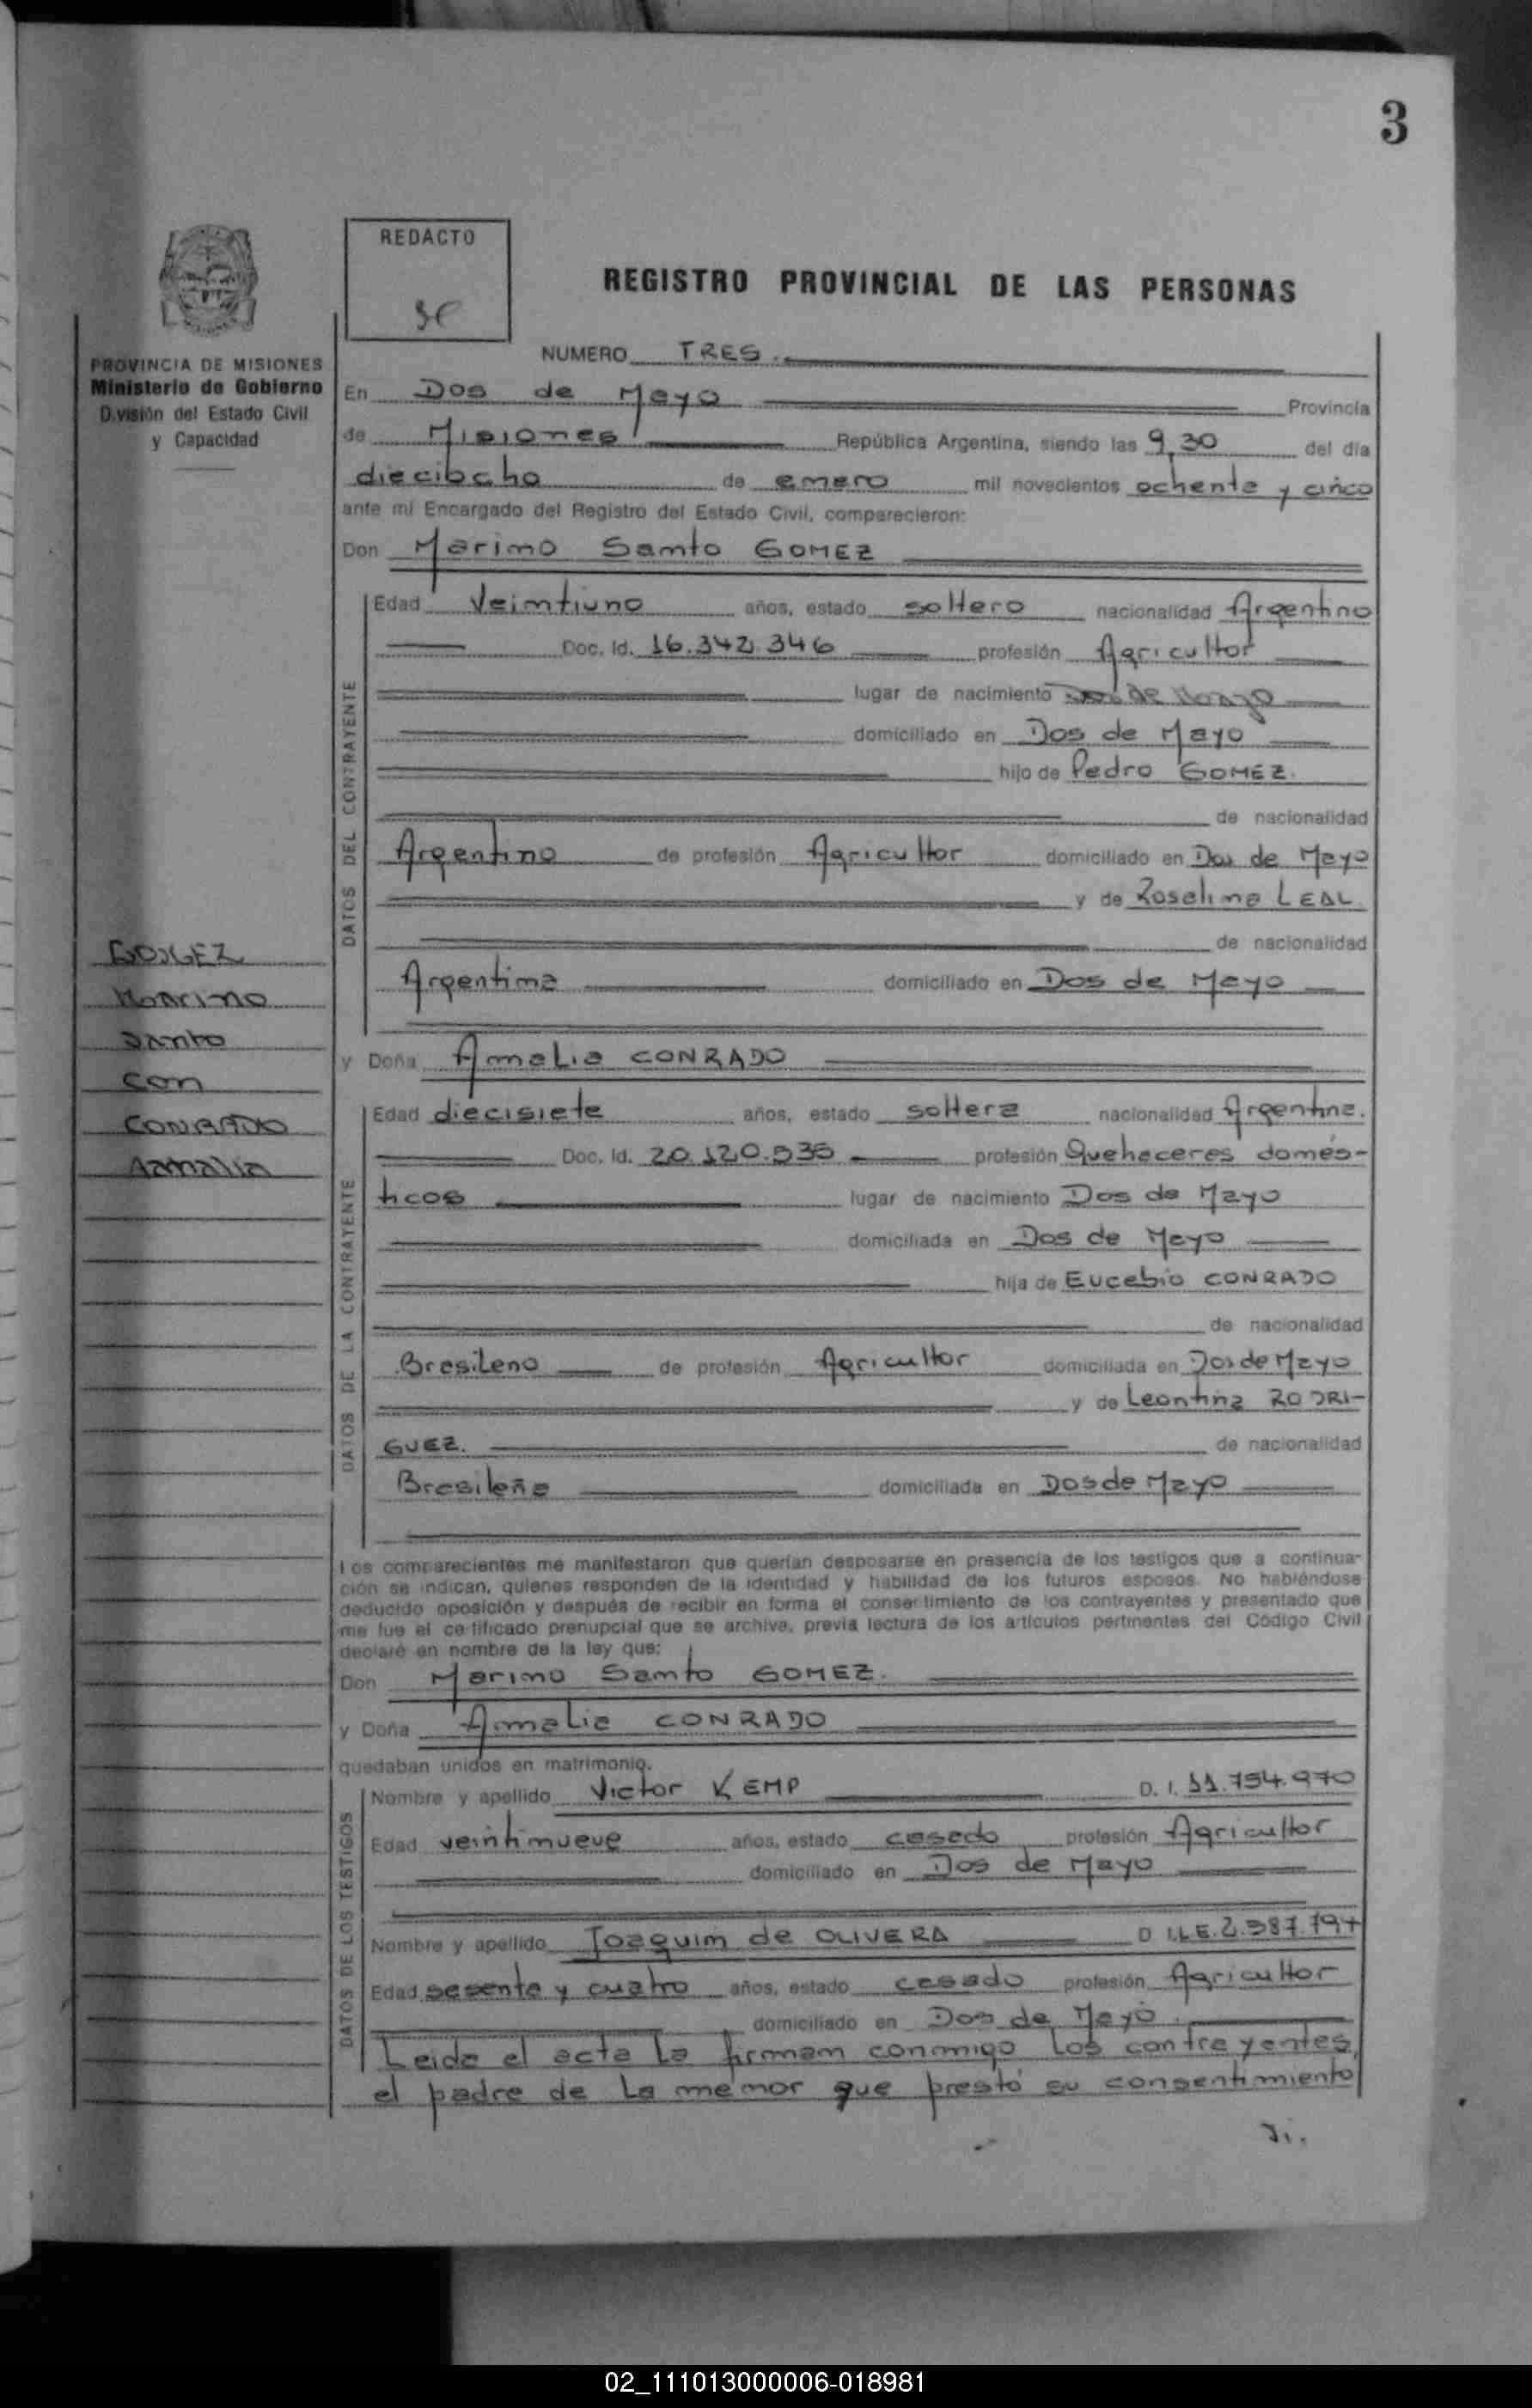 3
REDACTO
REGISTRO PROVINCIAL DE LAS PERSONAS
NUMERO TRES.
PROVINCIA DE MISIONES
Ministerio de Gobierno
División del Estado Civil
y Capacidad
En Dos de Mayo Provincia
de Misiones República Argentina, siendo las 9,30 del día
dieciocho de enero mil novecientos ochenta y cinco
ante mí Encargado del Registro del Estado Civil, comparecieron:
Don Marino Santo GOMEZ
DATOS DEL CONTRAYENTE
Edad Veintiuno años, estado soltero nacionalidad Argentino
Doc. Id. 16.342.346 profesión Agricultor
lugar de nacimiento Dos de Mayo
domiciliado en Dos de Mayo
hijo de Pedro GOMEZ.
de nacionalidad
Argentino de profesión Agricultor domiciliado en Dos de Mayo
y de Roselina LEAL
de nacionalidad
Argentina domiciliado en Dos de Mayo
GOMEZ
Marino
Santo
con
CONRADO
Amalia
y Doña Amalia CONRADO
DATOS DE LA CONTRAYENTE
Edad diecisiete años, estado soltera nacionalidad Argentina.
Doc. Id. 20.120.535 profesión Quehaceres domés-
ticos lugar de nacimiento Dos de Mayo
domiciliada en Dos de Mayo
hija de Eucebio CONRADO
de nacionalidad
Brasileno de profesión Agricultor domiciliada en Dos de Mayo
y de Leontina RODRI-
GUEZ. de nacionalidad
Brasileña domiciliada en Dos de Mayo
Los comparecientes me manifestaron que querían desposarse en presencia de los testigos que a continua-
ción se indican, quienes responden de la identidad y habilidad de los futuros esposos. No habiéndose
deducido oposición y después de recibir en forma el consentimiento de los contrayentes y presentado que
me fue el certificado prenupcial que se archiva, previa lectura de los artículos pertinentes del Código Civil
declaré en nombre de la ley que:
Don Marino Santo GOMEZ.
y Doña Amalia CONRADO
quedaban unidos en matrimonio.
DATOS DE LOS TESTIGOS
Nombre y apellido Victor KEMP D. I. 11.754.970
Edad veintinueve años, estado casado profesión Agricultor
domiciliado en Dos de Mayo
Nombre y apellido Joaquim de OLIVERA D I.L.E. 2.387.797
Edad sesenta y cuatro años, estado casado profesión Agricultor
domiciliado en Dos de Mayo.
Leida el acta la firman conmigo los contrayentes,
el padre de la menor que prestó su consentimiento
02_111013000006-018981